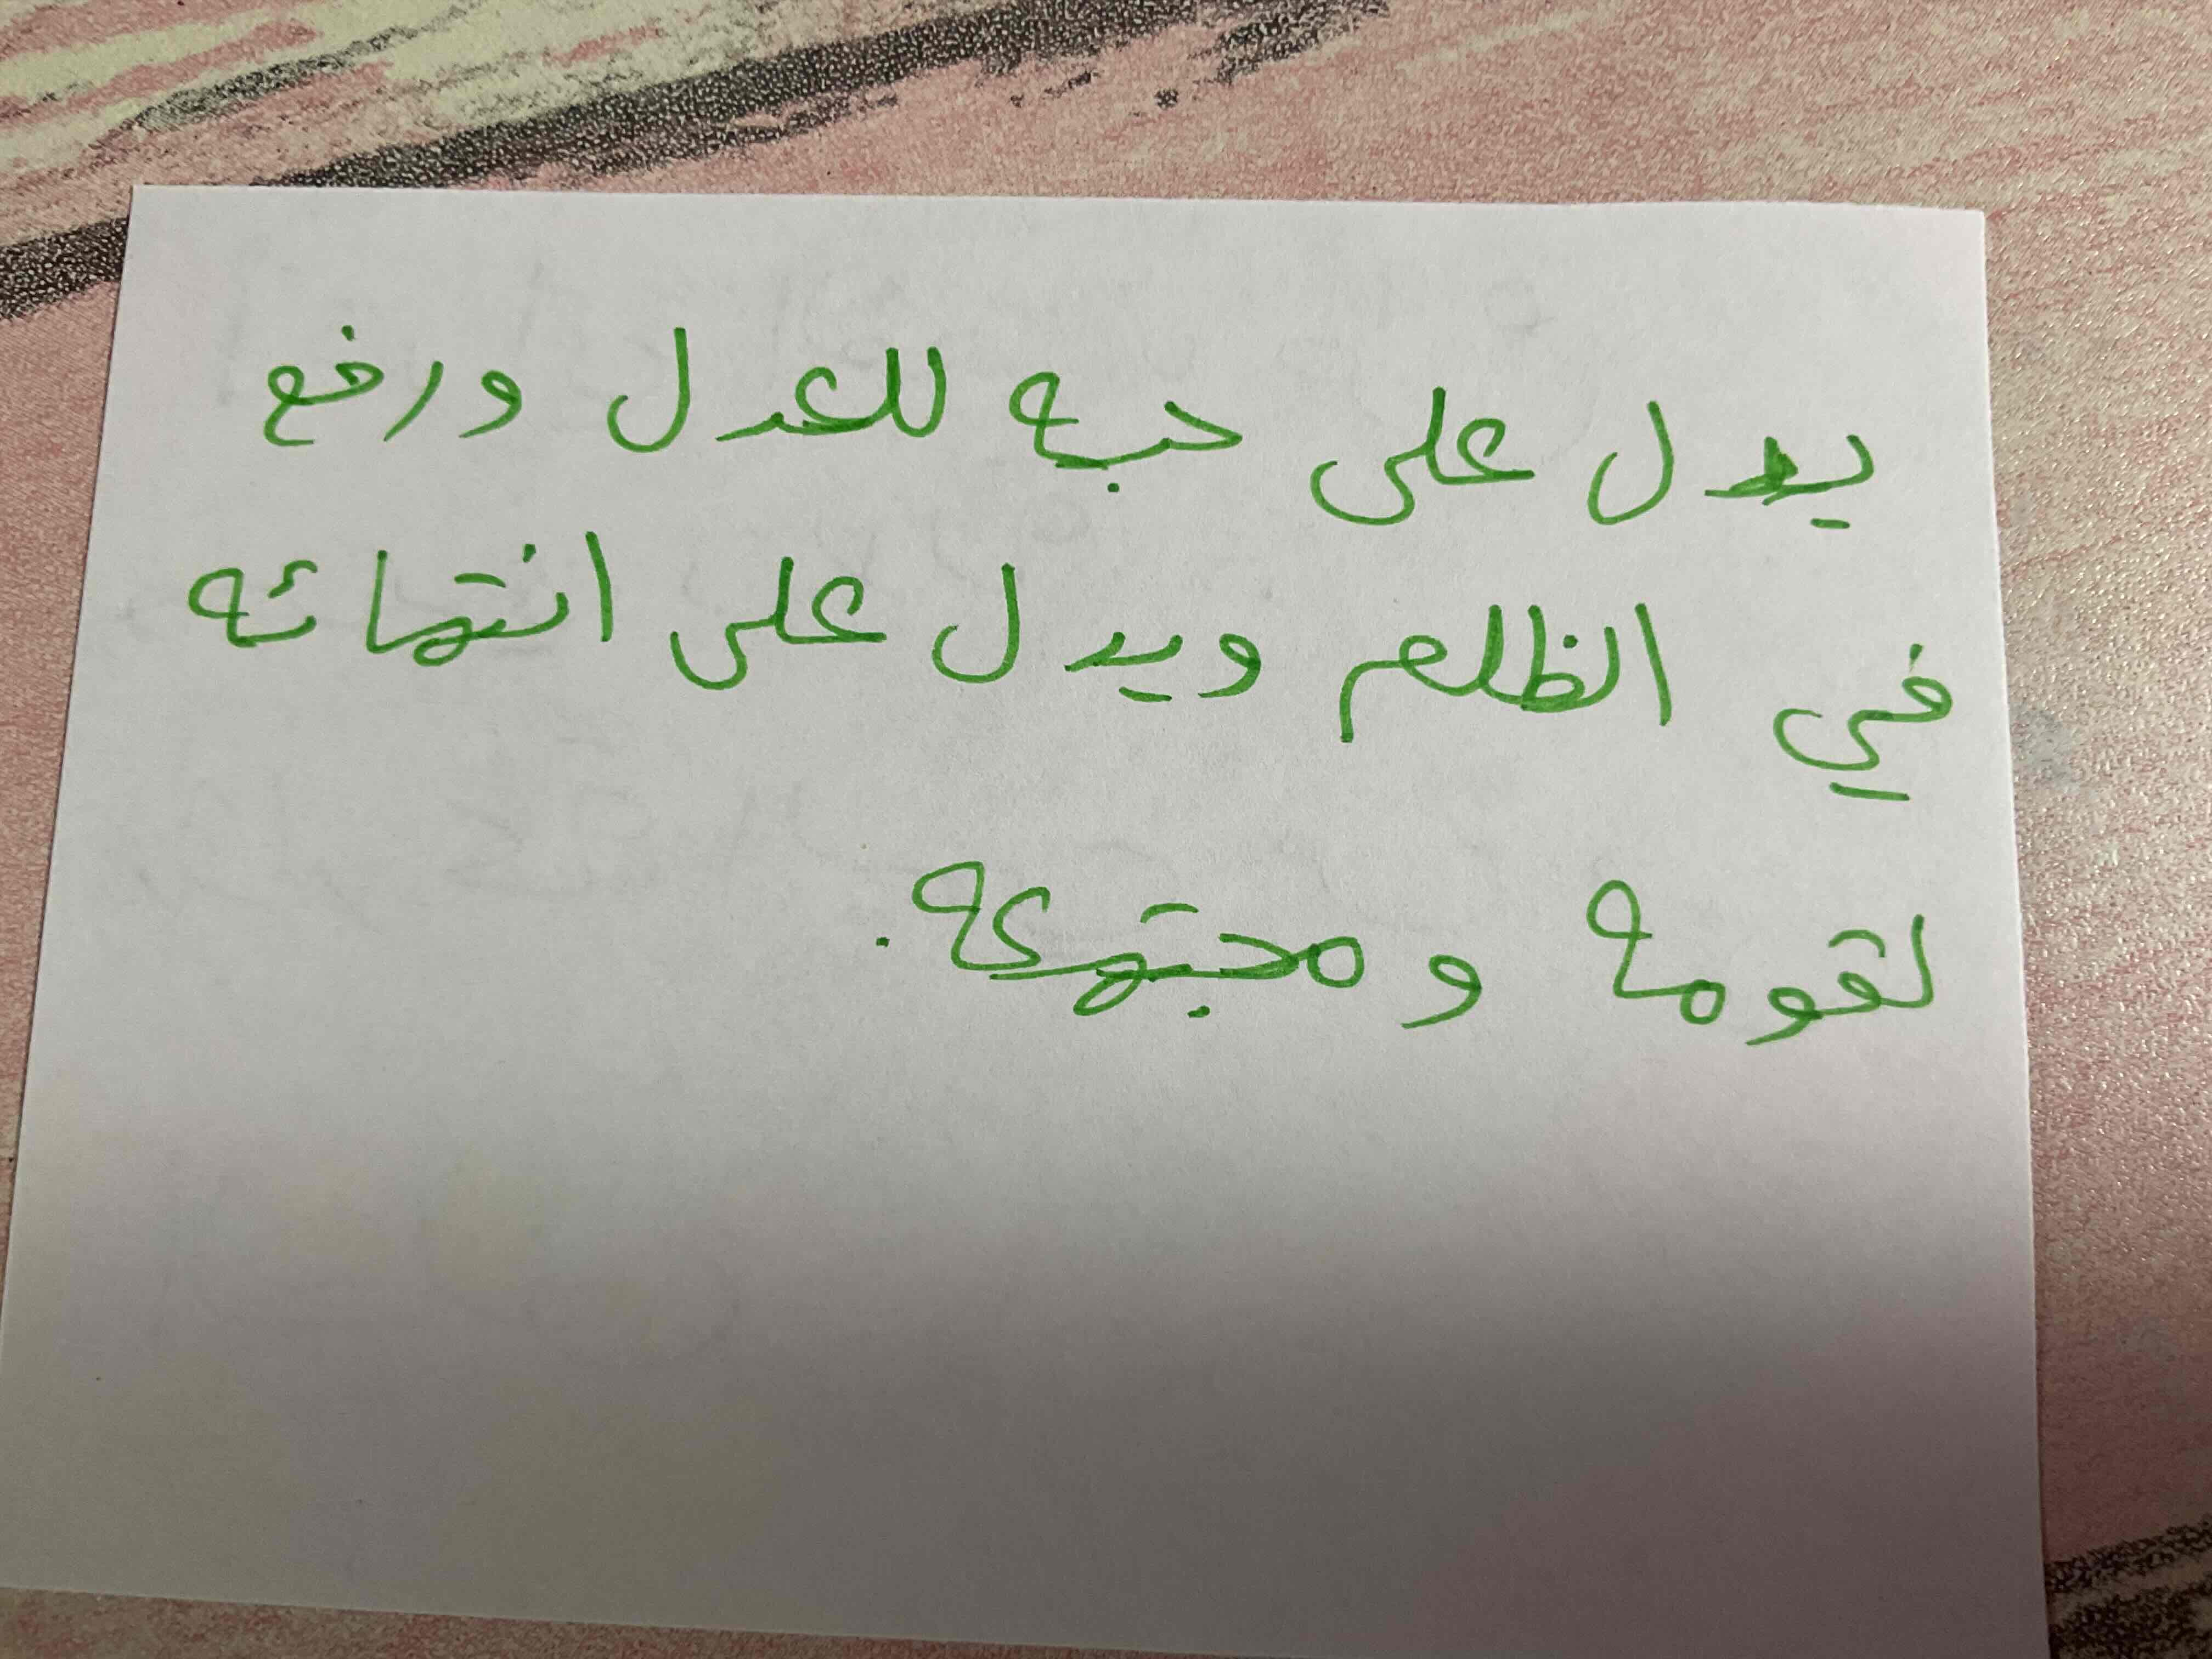 يدل على حبه للعدل ورفع
في الظلم ويدل على انتمائه
لقومه ومجتمعه.